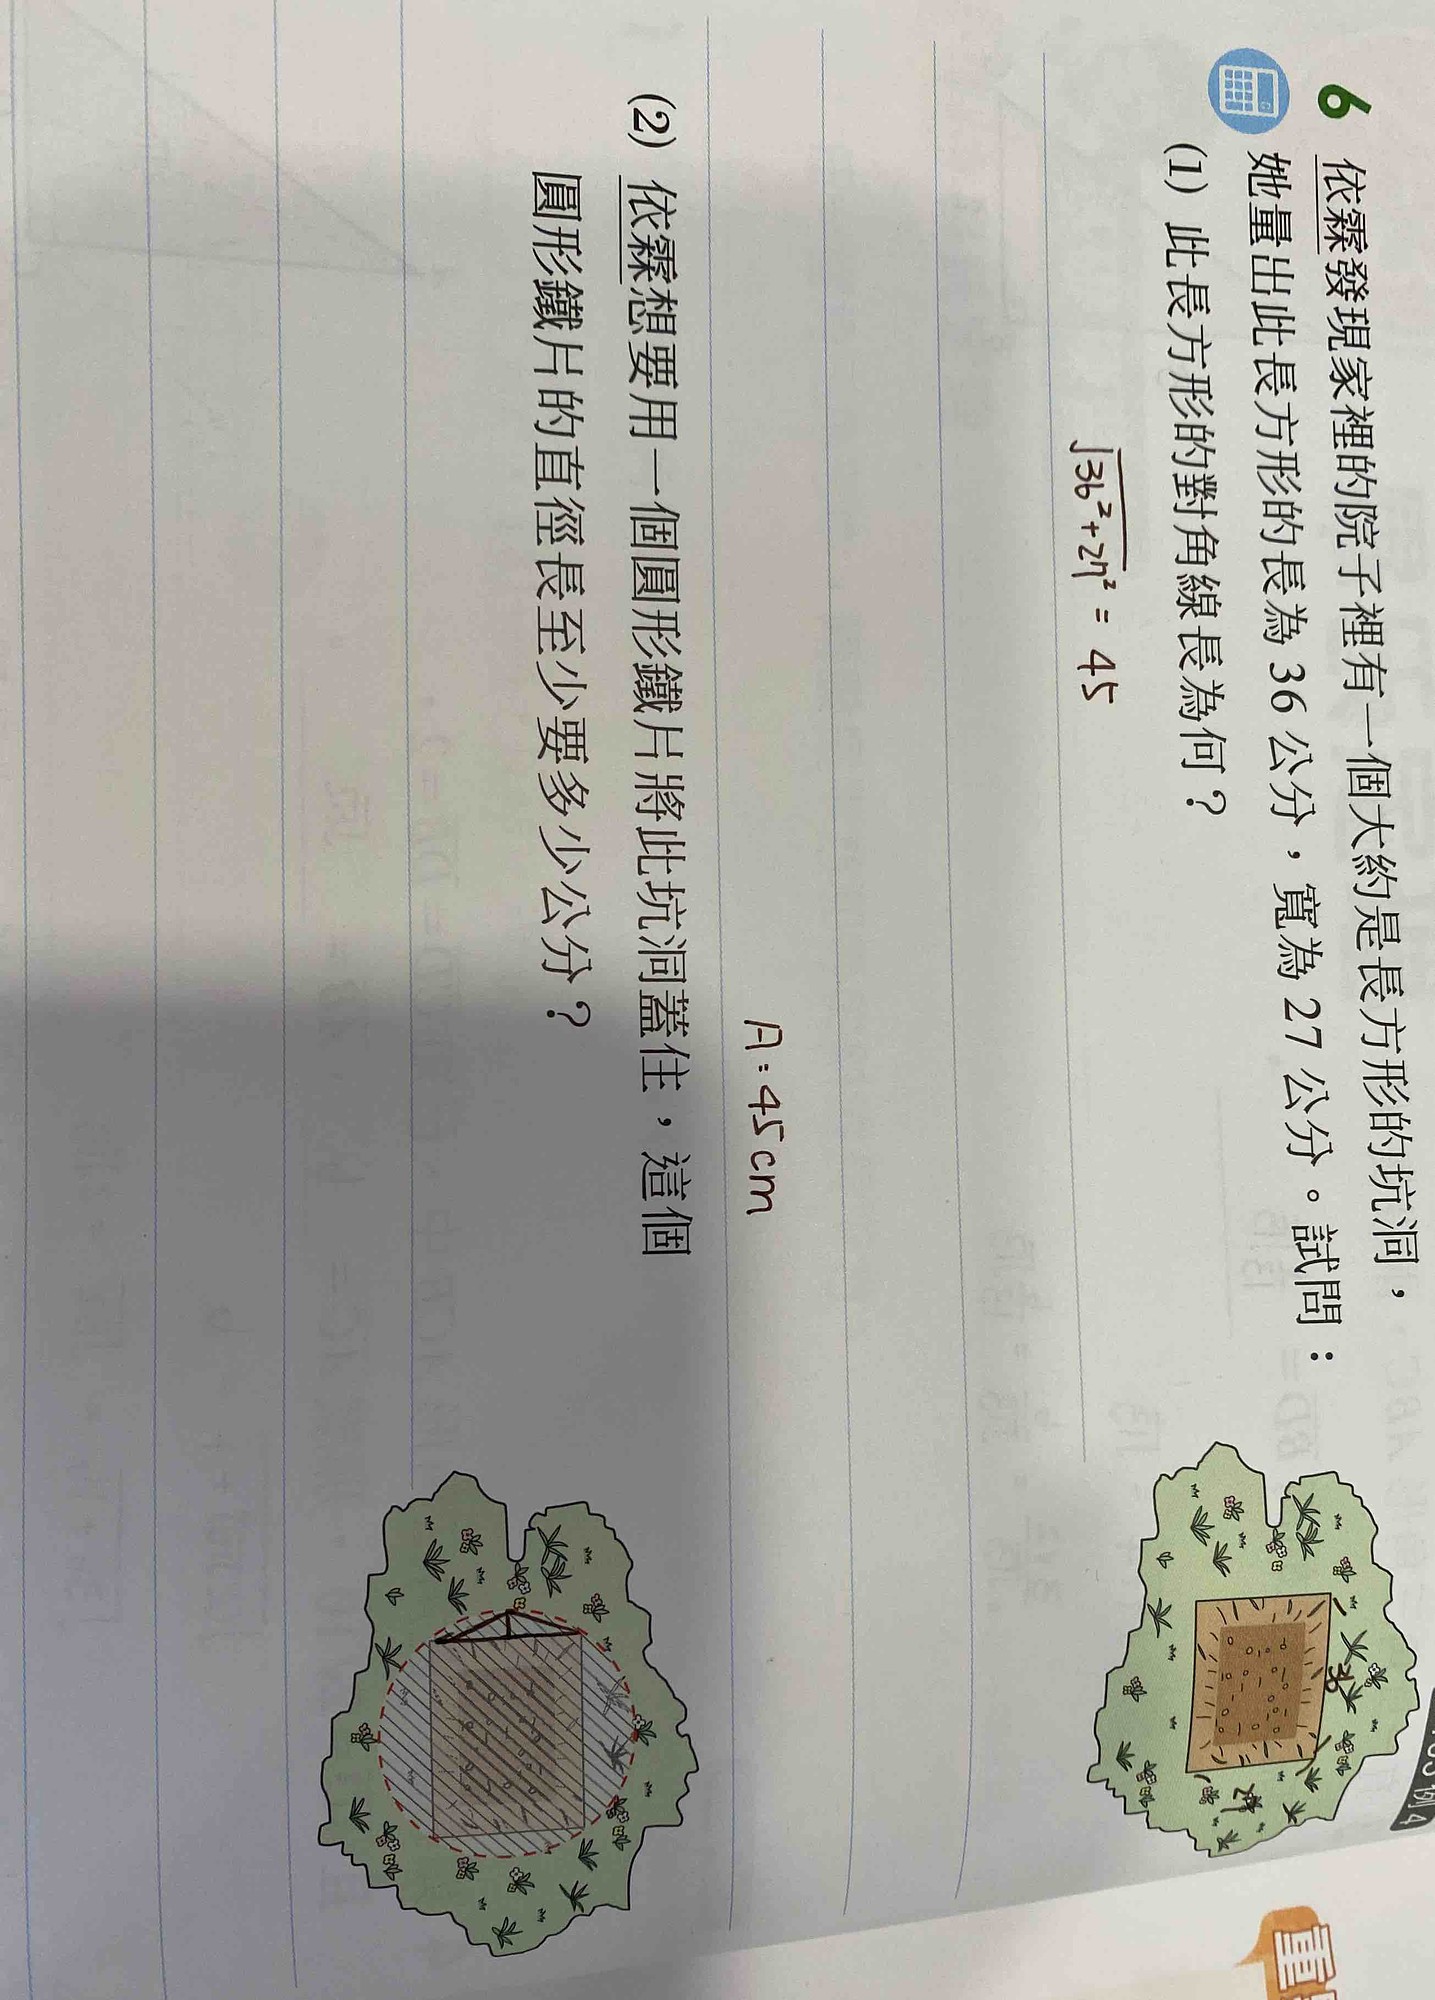 6 依霖發現家裡的院子裡有一個大約是長方形的坑洞，
她量出此長方形的長為 36 公分，寬為 27 公分。試問：
(1) 此長方形的對角線長為何？
√36²+27² = 45
36
27
A：45cm
(2) 依霖想要用一個圓形鐵片將此坑洞蓋住，這個
圓形鐵片的直徑長至少要多少公分？
例 4